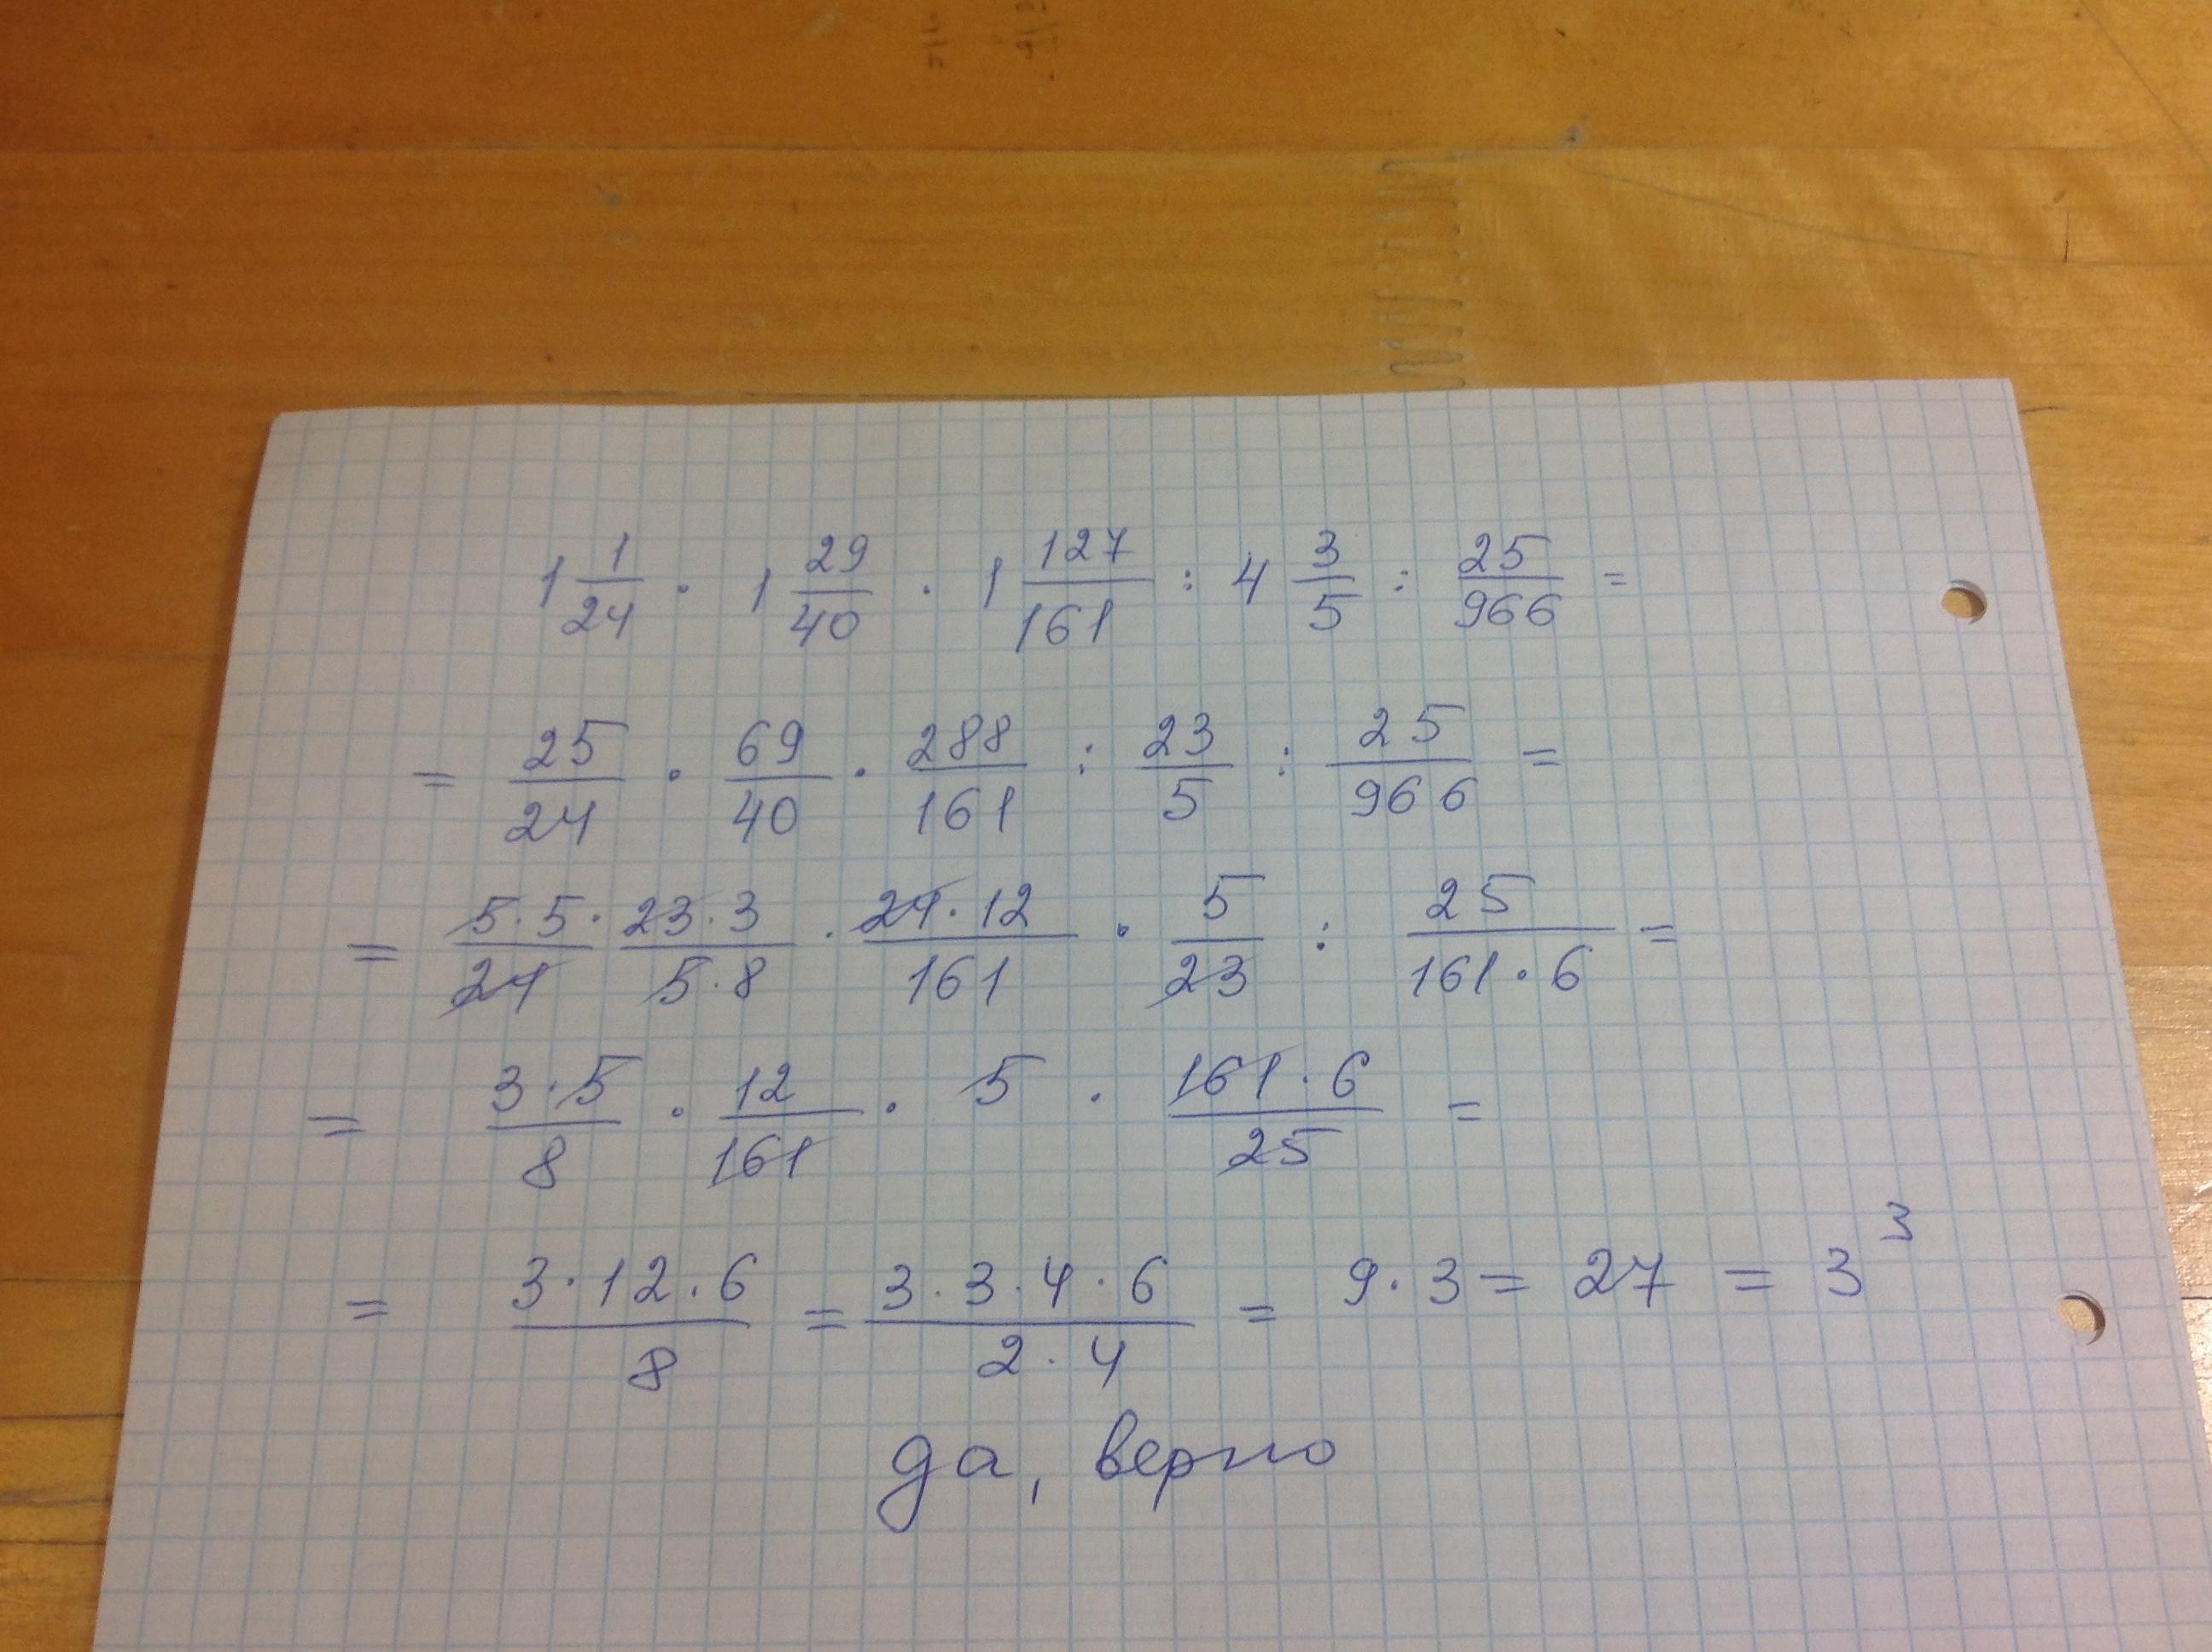 1 1/24 · 1 29/40 · 1 127/161 : 4 3/5 : 25/966 =
= 25/24 · 69/40 · 288/161 : 23/5 : 25/966 =
= 5·5/24 · 23·3/5·8 · 24·12/161 · 5/23 : 25/161·6 =
= 3·5/8 · 12/161 · 5 · 161·6/25 =
= 3·12·6/8 = 3·3·4·6/2·4 = 9·3 = 27 = 3³
да, верно